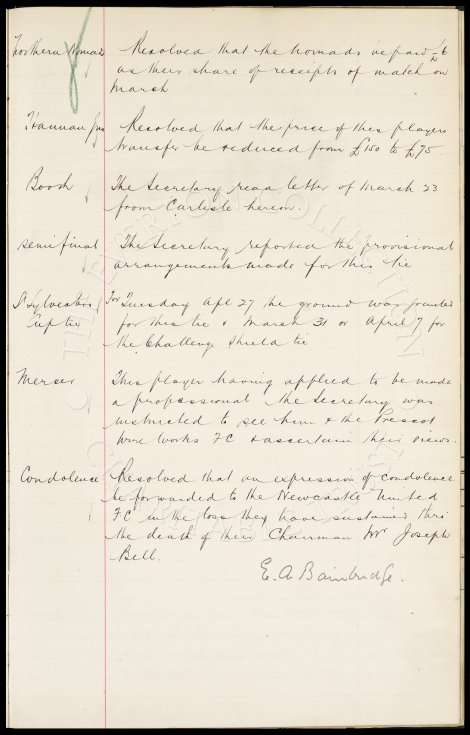 Northern Nomads Resolved that the Nomads be paid £6
as their share of receipts of match on
March
Hannan Jas Resolved that the price of this players
transfer be reduced from £150 to £75.
Booth The Secretary read letter of March 23
from Carlisle herein.
Semi final The Secretary reported the provisional
arrangements made for this tie
St Sylvesters For Tuesday Apl 27 the ground was granted
Cup tie for this tie & March 31 or April 7 for
the Challenge Shield tie
Mercer This player having applied to be made
a professional the Secretary was
instructed to see him & the Prescot
Wire Works FC & ascertain their views.
Condolence Resolved that an expression of condolence
be forwarded to the Newcastle United
FC in the loss they have sustained thro
the death of their Chairman Mr Joseph
Bell.
E. A. Bainbridge.
THE EVERTON COLLECTION